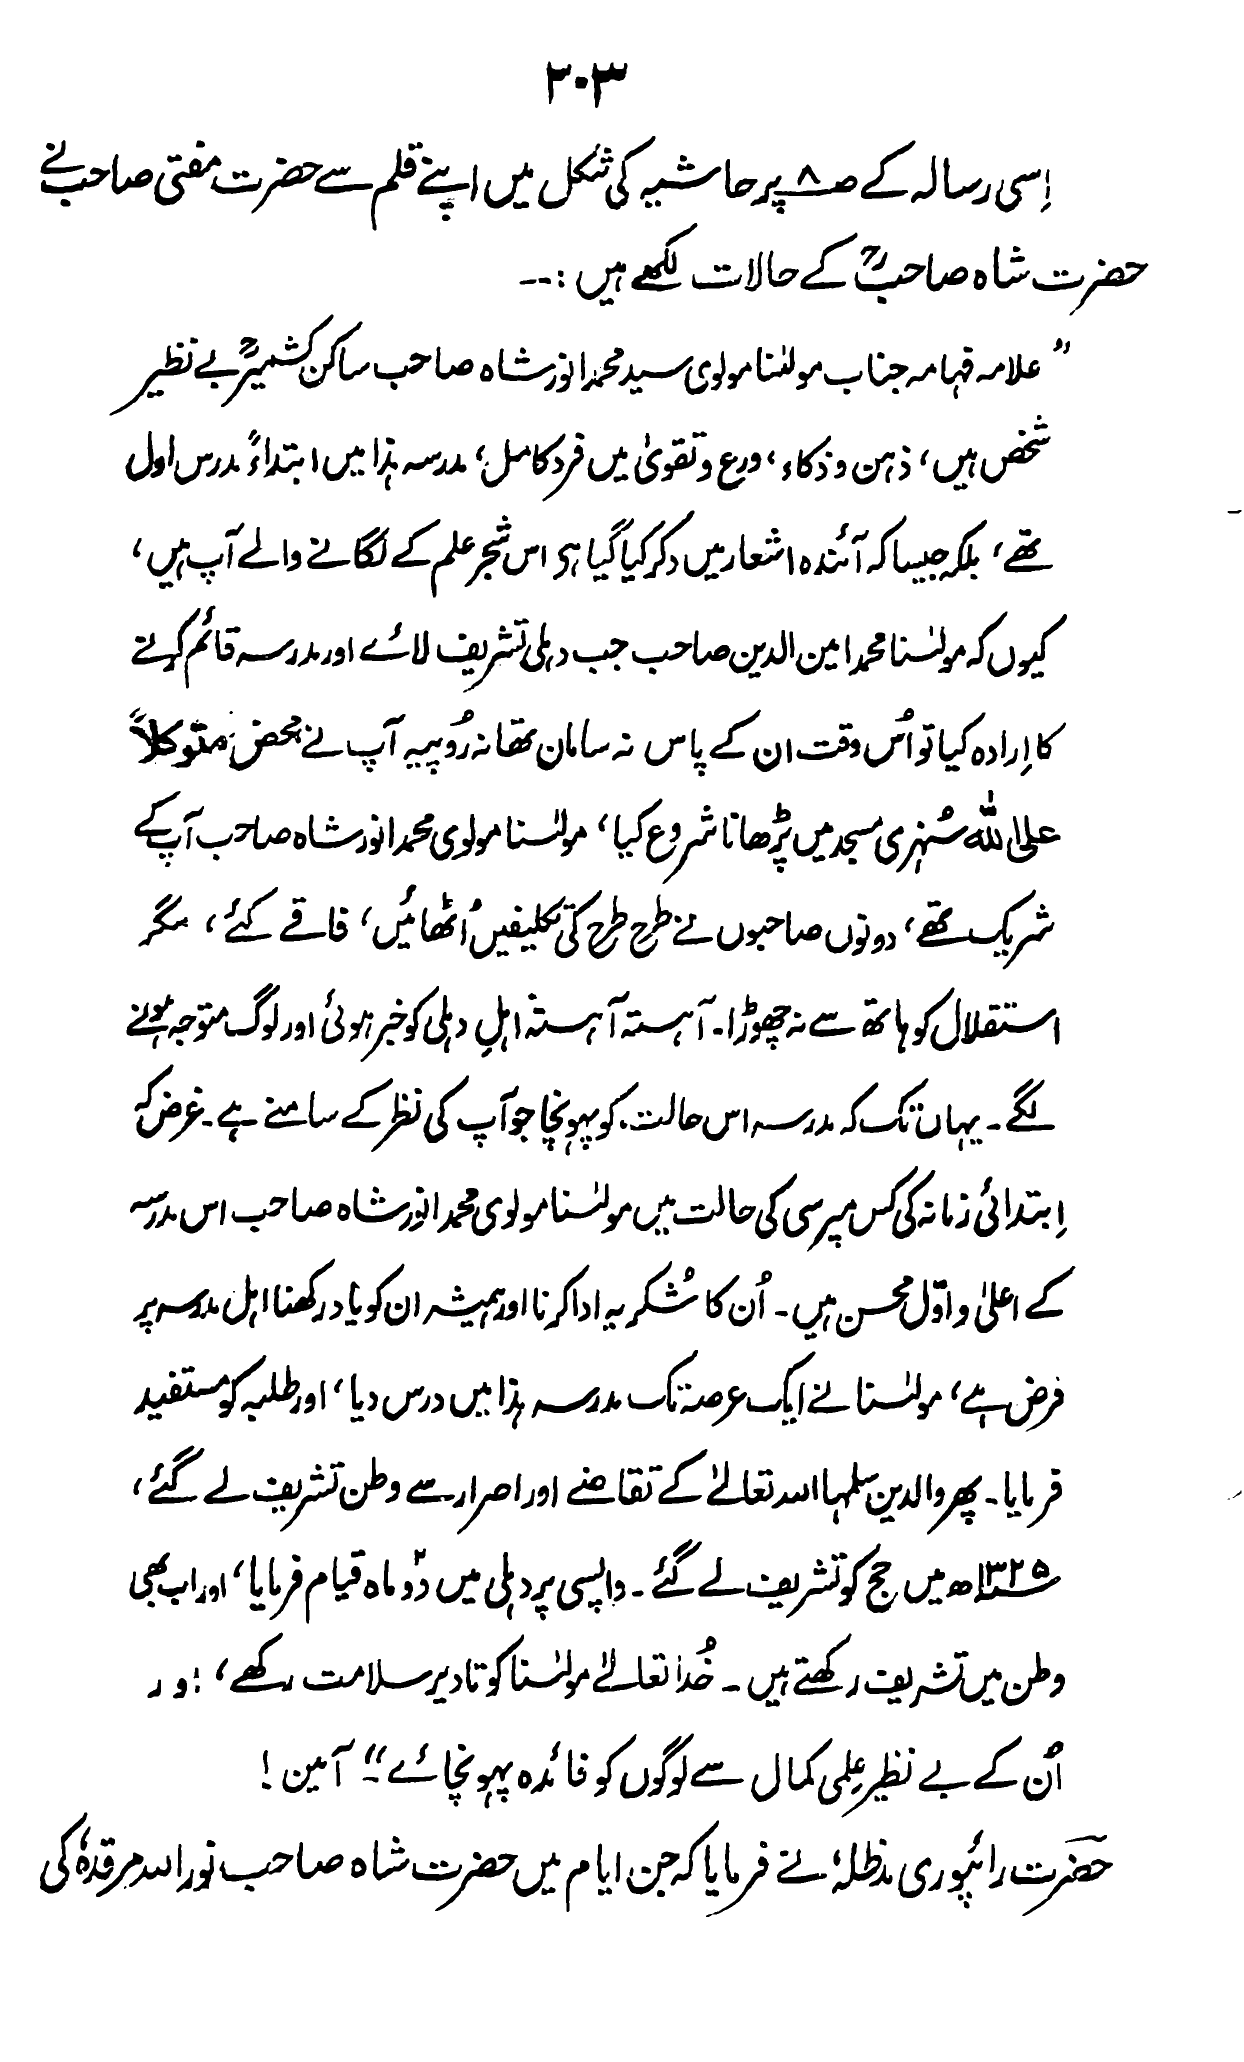 ۲۰۳
اِسی رسالہ کے صـ۸ پر حاشیہ کی شکل میں اپنے قلم سے حضرت مفتی صاحب نے
حضرت شاہ صاحبؒ کے حالات لکھے ہیں :--
” علامہ فہامہ جناب مولٰنا مولوی سید محمد انور شاہ صاحب ساکن کشمیرؒ بے نظیر
شخص ہیں، ذہن و ذکاء، ورع و تقویٰ میں فرد کامل، مدرسہ ہٰذا میں ابتداءً مدرس اول
تھے، بلکہ جیسا کہ آئندہ اشعار میں ذکر کیا گیا ہی اس شجر علم کے لگانے والے آپ ہیں،
کیوں کہ مولٰنا محمد امین الدین صاحب جب دہلی تشریف لائے اور مدرسہ قائم کرنے
کا اِرادہ کیا تو اُس وقت ان کے پاس نہ سامان تھا نہ رُوپیہ آپ نے محض متوکلاً
علی اللہ سُنہری مسجد میں پڑھانا شروع کیا، مولٰنا مولوی محمد انور شاہ صاحب آپ کے
شریک تھے، دونوں صاحبوں نے طرح طرح کی تکلیفیں اُٹھائیں، فاقے کئے، مگر
استقلال کو ہاتھ سے نہ چھوڑا۔ آہستہ آہستہ اہلِ دہلی کو خبر ہوئی اور لوگ متوجہ ہونے
لگے۔ یہاں تک کہ مدرسہ اس حالت کو پہونچا جو آپ کی نظر کے سامنے ہے۔ غرض کہ
اِبتدائی زمانہ کی کس مپرسی کی حالت میں مولٰنا مولوی محمد انور شاہ صاحب اس مدرسہ
کے اعلیٰ و اوّل محسن ہیں۔ اُن کا شُکریہ ادا کرنا اور ہمیشہ ان کو یاد رکھنا اہل مدرسہ پر
فرض ہے، مولٰنا نے ایک عرصہ تک مدرسہ ہٰذا میں درس دیا، اور طلبہ کو مستفید
فرمایا۔ پھر والدین سلمہا اللہ تعالےٰ کے تقاضے اور اصرار سے وطن تشریف لے گئے،
۱۳۲۵ھ میں حج کو تشریف لے گئے۔ واپسی پر دہلی میں دو۲ ماہ قیام فرمایا، اور اب بھی
وطن میں تشریف رکھتے ہیں۔ خُدا تعالےٰ مولٰنا کو تا دیر سلامت رکھے، اور
اُن کے بے نظیر عِلمی کمال سے لوگوں کو فائدہ پہونچائے“۔ آمین !
حضرت رائپوری مدظلہٗ نے فرمایا کہ جن ایام میں حضرت شاہ صاحب نور اللہ مرقدہٗ کی